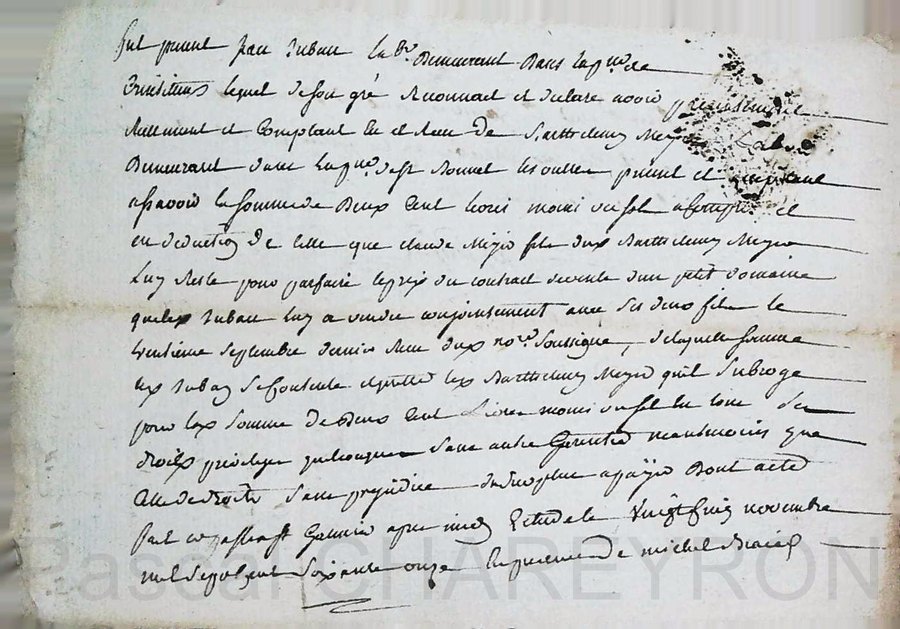 fut present Jean Ruban lab.r Demeurant Dans la p.sse de
lequel de son gré Reconnait et declare avoir presentement
Reellement et Comptant Eu et Receu de Barthelemy Meyre Lab.r
Demeurant dans la p.sse de st Bonnet present et acceptant
assavoir la somme de Deux Cent livres moins un sol a Compte et
en deduction de Celle que claude Meyre fils dud Barthelemy Meyre
Luy Reste pour parfaire le prix du contract de vente d'un petit domaine
que led Ruban luy a vendu conjointement avec ses deux fils le
Septembre dernier Receu dud no.re Soussigné, de laquelle somme
led Ruban se Contente et quitte led Barthelemy Meyre qu'il Subroge
pour lad somme de Deux Cent Livres moins un sol En tous ses
droits privileges quelconques Sans autre Garentie neanmoins que
Celle de droit Sans prejudice du surplus a payer Dont acte
fait et passé a st apres midy Etude le Vingt novembre
mil Sept Cent Soixante onze En presence de michel
Pascal CHAREYRON